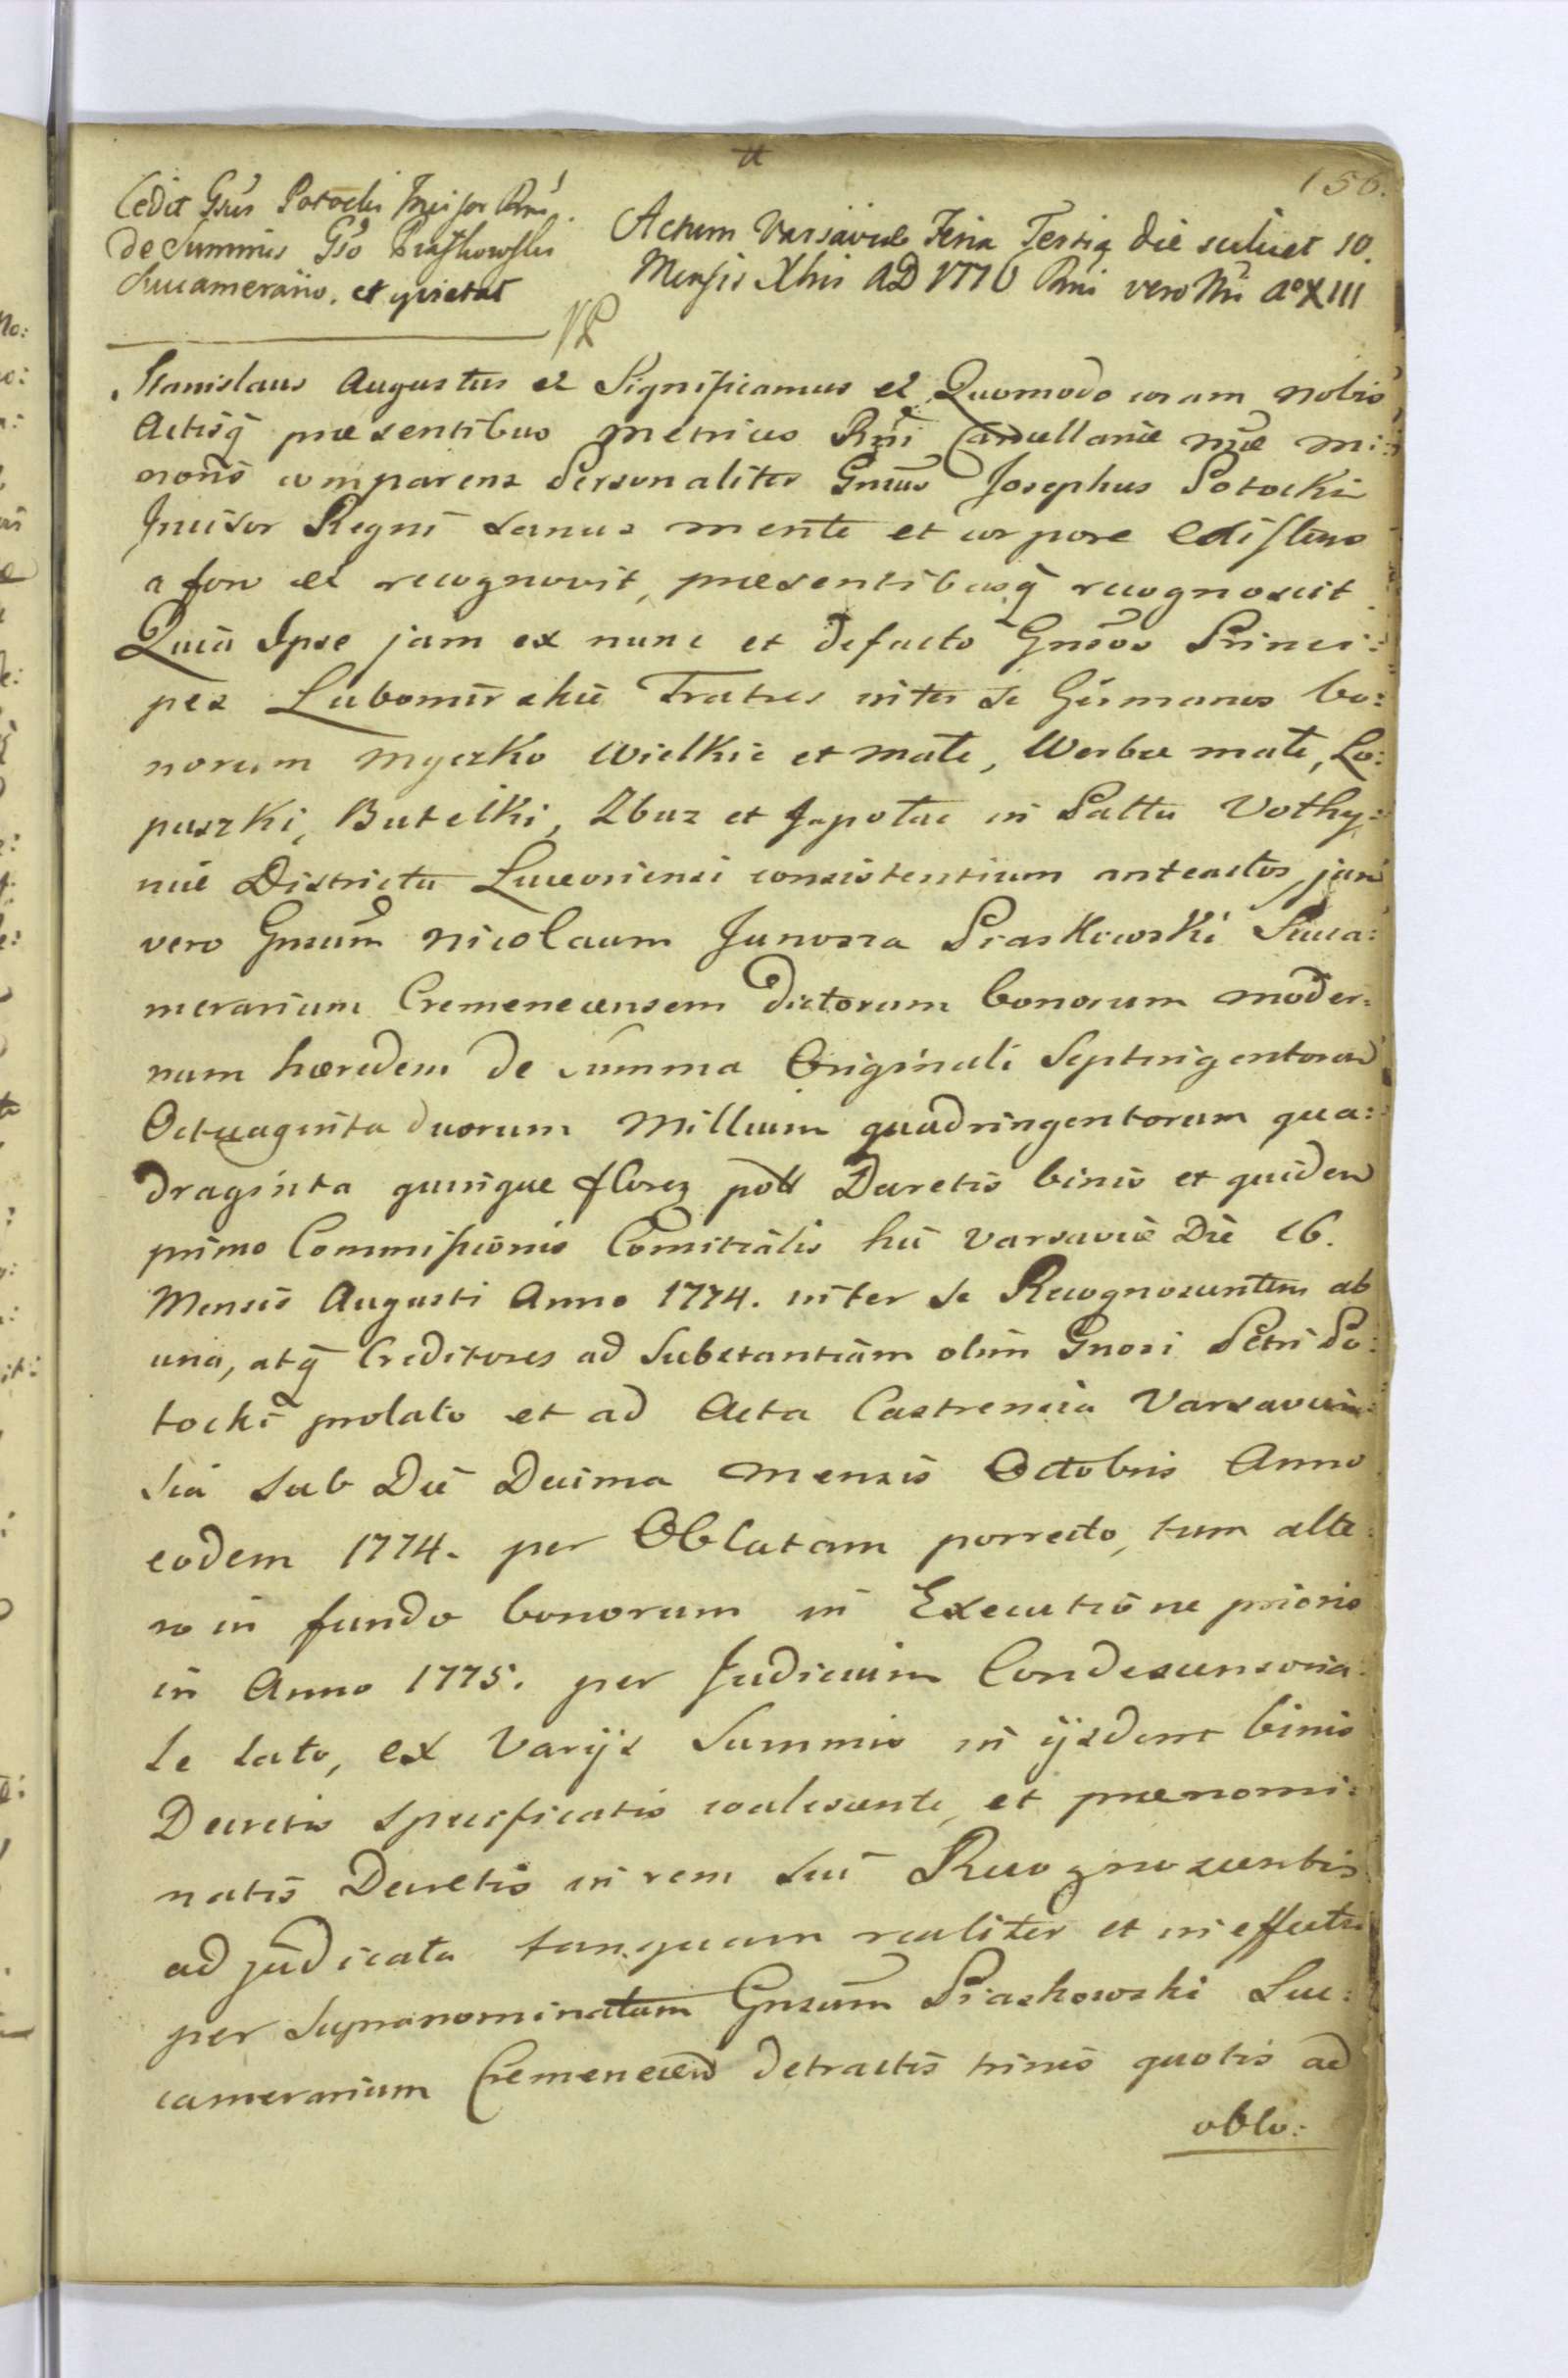 156.
Cedit Gsus Potocki Incisor Rni
de Summis Gso Piaskowski
Succamerario, et quietat
Actum Varsaviae Feria Tertia die scilicet 10.
Mensis Xbris AD 1776 Rni vero Nri a° XIII
Stanislaus Augustus et Significamus et Quomodo coram nobis
Actisq̃ praesentibus metrices Rñi Cancellariae nr̃ae mi:
noris comparens Personaliter Gnsus Josephus Potocki
Incisor Regni sanus mente et corpore existens
a foro et recognovit, praesentibusq̃ recognoscit
Quia Ipse jam ex nunc et defacto Gnsos Princi:
pes Lubomirskie Fratres inter se Germanos bo:
norum Myczko Wielkie et Małe, Werbce małe, Lo:
puszki, Butelki, Zbuz et Japołoc in Palttu Volhy:
niae Districtu Luceoriensi consistentium anteactos, jam
vero Gnsum Nicolaum Junosza Piaskowski Succa:
merarium Cremenecensem dictorum bonorum moder:
num haeredem de summa Originali Septingentorum
Octuaginta duorum Millium quadringentorum qua:
draginta quinque floreñ poll Decretis binis et quidem
primo Commissionis Comitialis hic Varsaviae Die 16.
Mensis Augusti Anno 1774. inter se Recognoscentem ab
una, atq̃ Creditores ad Substantiam olim Gnosi Petri Po:
tocki prolato et ad Acta Castrensia Varsavien:
sia sub Die Decima Mensis Octobris Anno
eodem 1774. per Oblatam porrecto, tum alte:
ro in fundo bonorum in Executione prioris
in Anno 1775. per Judicium Condescensoria:
le lato, ex Varijs Summis in ijsdem binis
Decretis specificatis coalescente, et praenomi:
natis Decretis in rem sui Recognoscentis
adjudicata tanquam realiter et in effectu
per Supranominatum Gnsum Piaskowski Suc:
camerarium Cremenecen detractis trinis quotis ad
oblo: